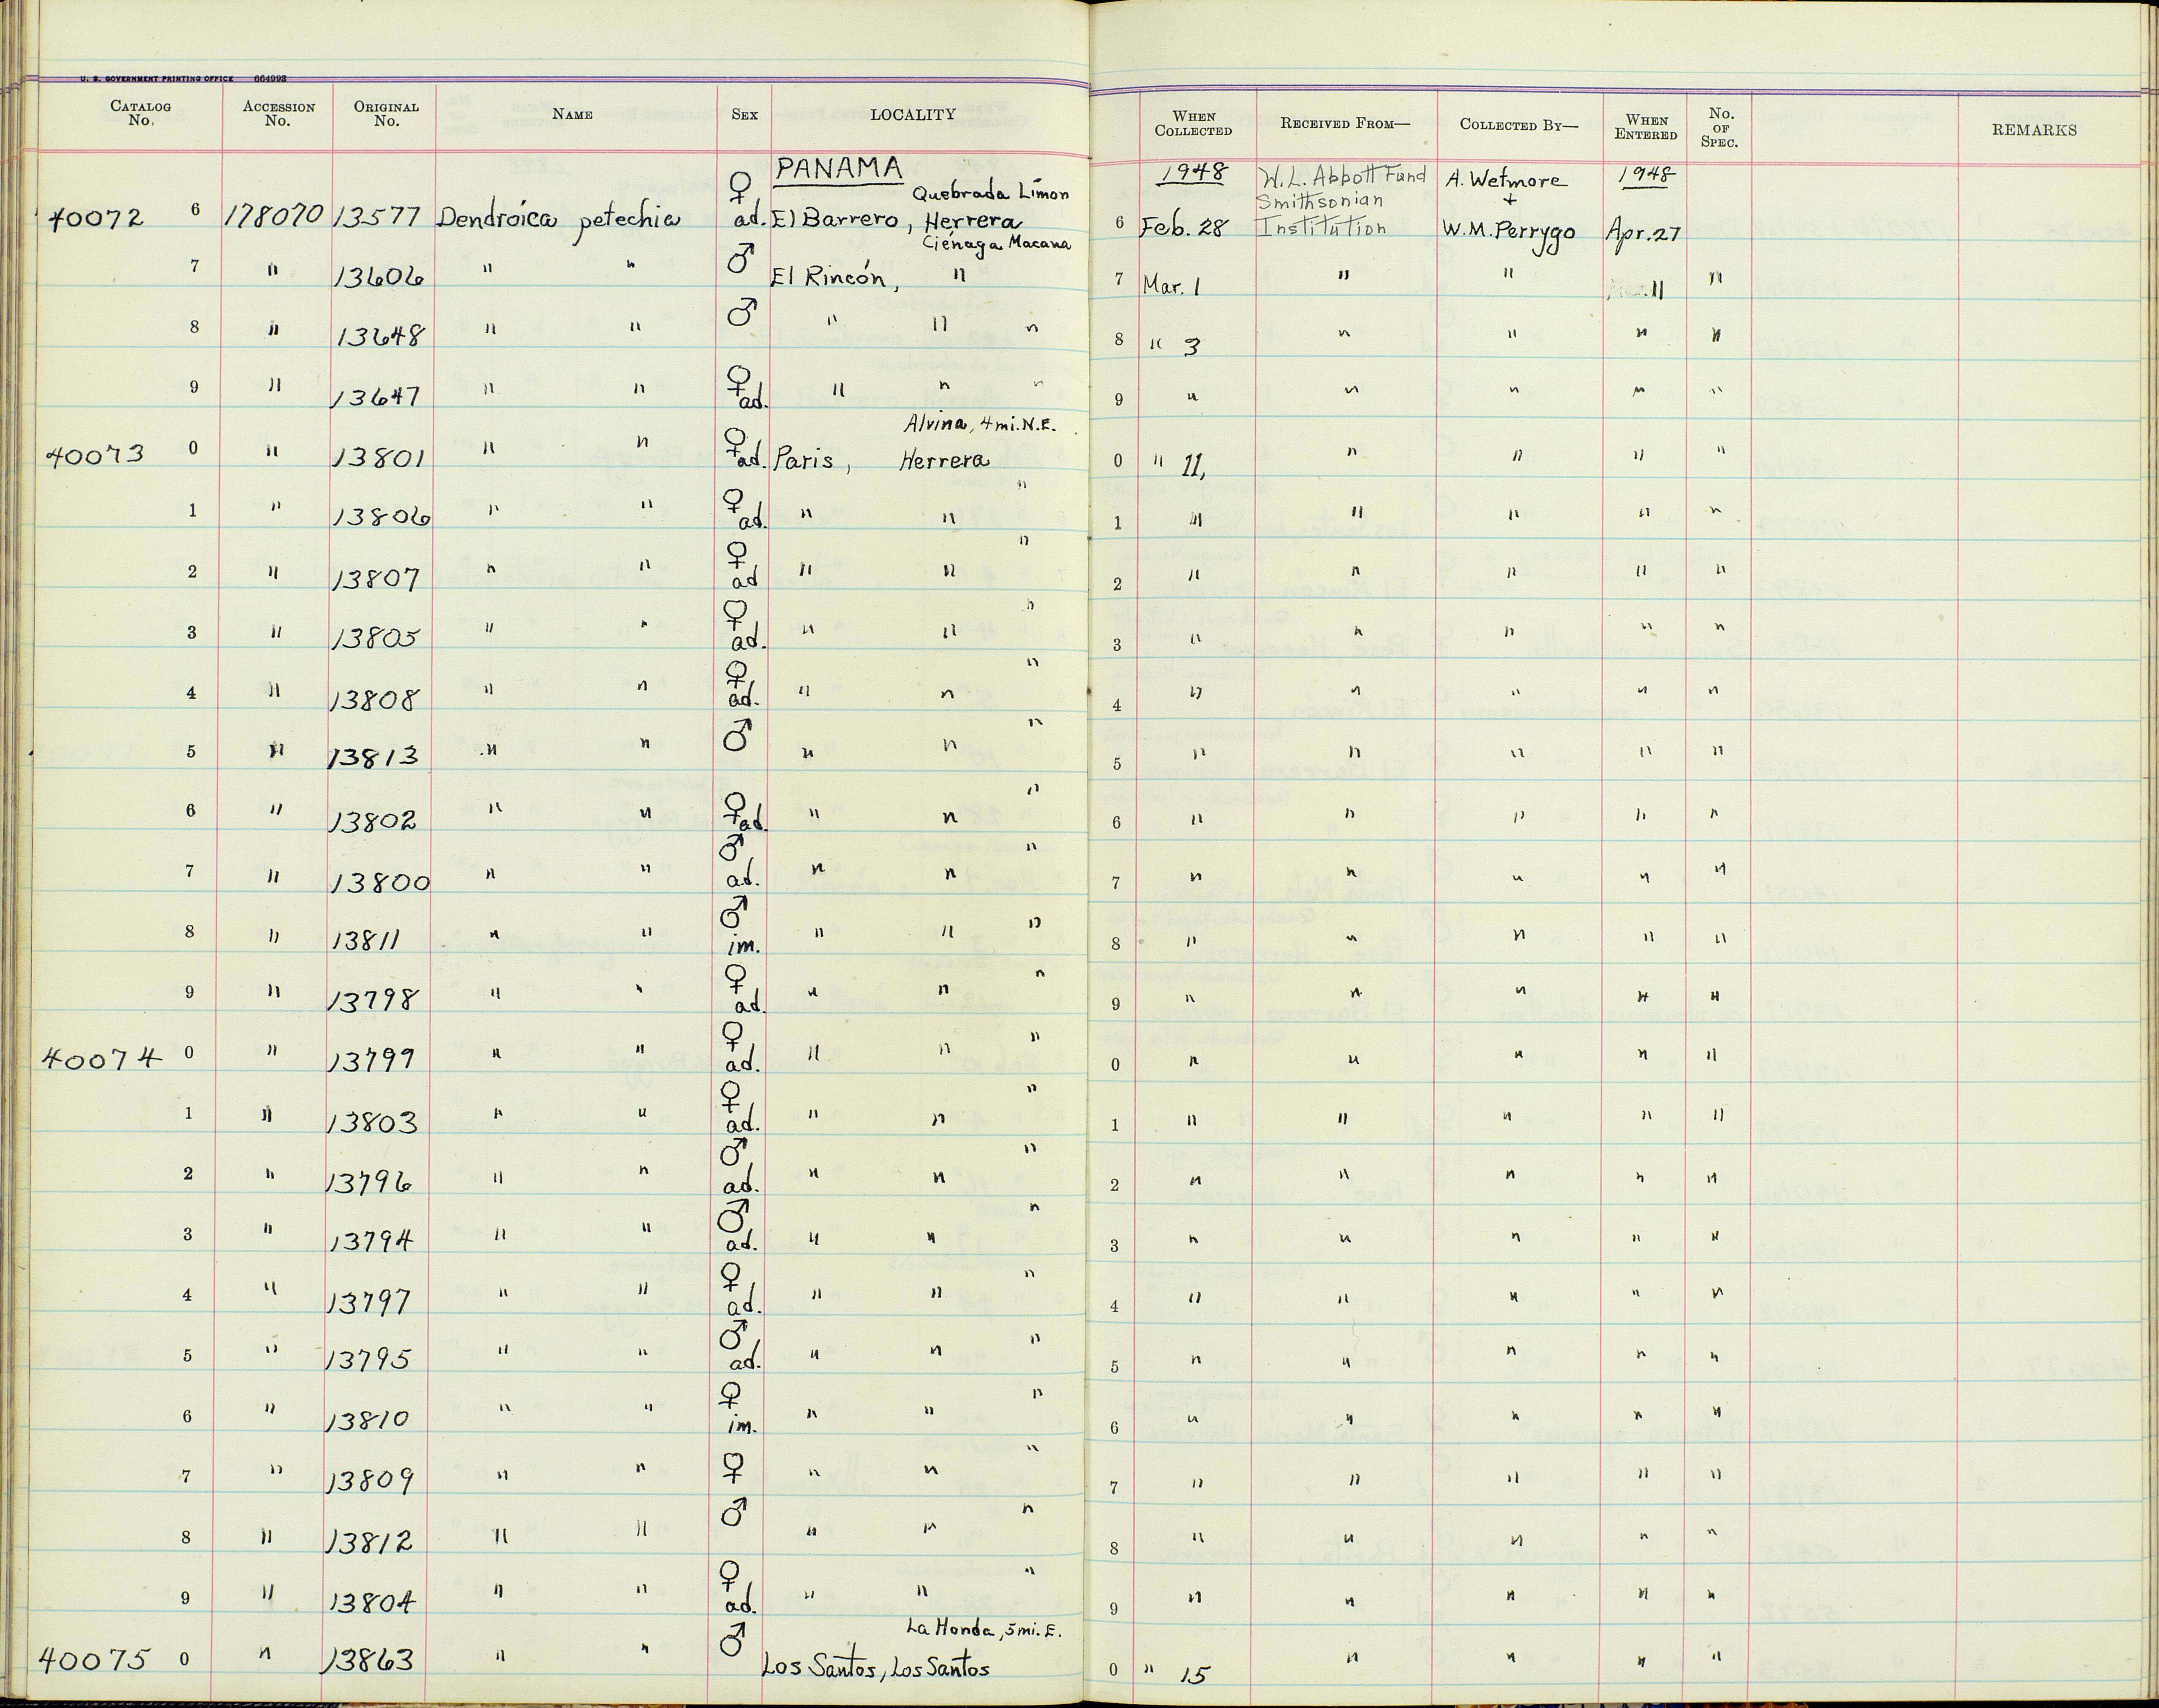 U. S. GOVERNMENT PRINTING OFFICE 664993
CATALOG No. ACCESSION No. ORIGINAL No. NAME SEX LOCALITY WHEN COLLECTED RECEIVED FROM— COLLECTED BY— WHEN ENTERED No. OF SPEC. REMARKS
PANAMA 1948 W. L. Abbott Fund A. Wetmore 1948
Quebrada Limon Smithsonian +
40072 6 178070 13577 Dendroica petechia ♀ ad. El Barrero, Herrera 6 Feb. 28 Institution W.M. Perrygo Apr. 27
Ciénaga Macana
7 " 13606 " " ♂ El Rincón, " 7 Mar. 1 " " " "
8 " 13648 " " ♂ " " " 8 " 3 " " " "
9 " 13647 " " ♀ ad. " " " 9 " " " " "
Alvina, 4 mi. N.E.
40073 0 " 13801 " " ♀ ad. Paris, Herrera 0 " 11, " " " "
1 " 13806 " " ♀ ad. " " " 1 " " " " "
2 " 13807 " " ♀ ad " " " 2 " " " " "
3 " 13805 " " ♀ ad. " " " 3 " " " " "
4 " 13808 " " ♀ ad. " " " 4 " " " " "
5 " 13813 " " ♂ " " " 5 " " " " "
6 " 13802 " " ♀ ad. " " " 6 " " " " "
7 " 13800 " " ♂ ad. " " " 7 " " " " "
8 " 13811 " " ♂ im. " " " 8 " " " " "
9 " 13798 " " ♀ ad. " " " 9 " " " " "
40074 0 " 13799 " " ♀ ad. " " " 0 " " " " "
1 " 13803 " " ♀ ad. " " " 1 " " " " "
2 " 13796 " " ♂ ad. " " " 2 " " " " "
3 " 13794 " " ♂ ad. " " " 3 " " " " "
4 " 13797 " " ♀ ad. " " " 4 " " " " "
5 " 13795 " " ♂ ad. " " " 5 " " " " "
6 " 13810 " " ♀ im. " " " 6 " " " " "
7 " 13809 " " ♀ " " " 7 " " " " "
8 " 13812 " " ♂ " " " 8 " " " " "
9 " 13804 " " ♀ ad. " " " 9 " " " " "
La Honda, 5 mi. E.
40075 0 " 13863 " " ♂ Los Santos, Los Santos 0 " 15 " " " "